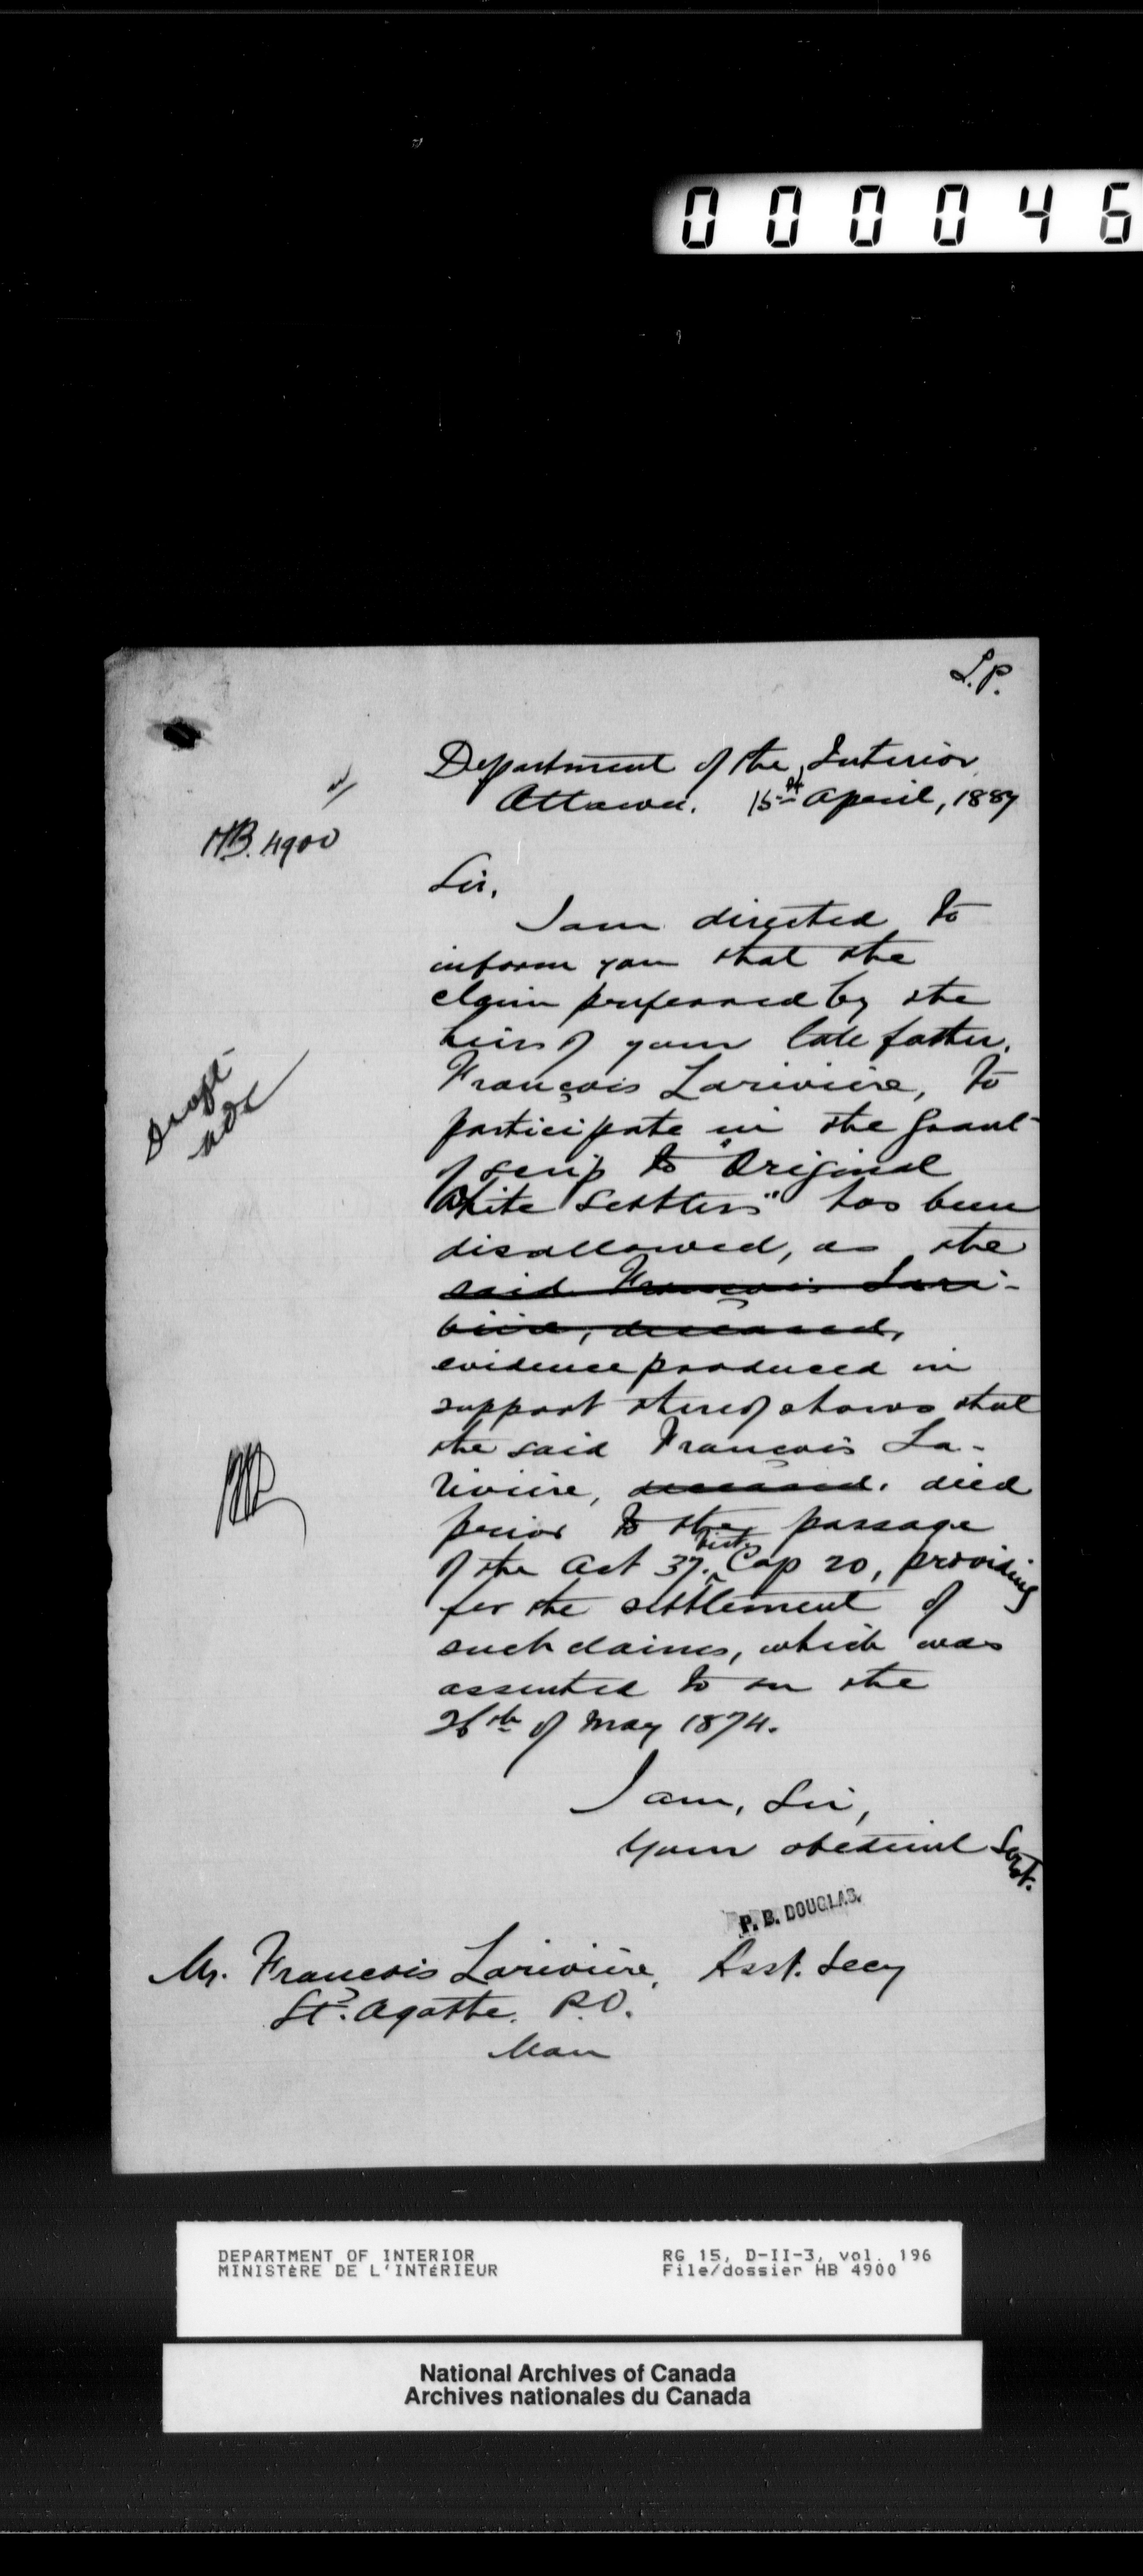 000046
L.P.
Department of the Interior
Ottawa. 15th April, 1887
HB. 4900
Sir,
I am directed to
inform you that the
claim preferred by the
heirs of your late father,
François Larivière, to
participate in the Grant
of scrip to "Original
White Settlers" has been
disallowed, as the
said François Lari-
vière, deceased,
evidence produced in
support thereof shows that
the said François La-
rivière, deceased, died
prior to the passage
of the Act 37. Vict. Cap 20, providing
for the settlement of
such claims, which was
assented to on the
26th of May 1874.
I am, Sir,
Your obedient Servt.
P. B. DOUGLAS.
Asst. Secy
Mr. François Larivière,
St. Agathe. P.O.
Man
Draft
DEPARTMENT OF INTERIOR
MINISTÈRE DE L'INTÉRIEUR
RG 15, D-II-3, vol. 196
File/dossier HB 4900
National Archives of Canada
Archives nationales du Canada